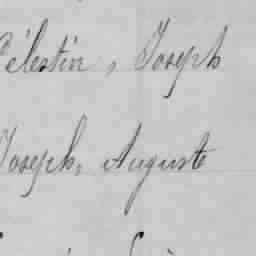 Célestin, Joseph
Joseph, Auguste